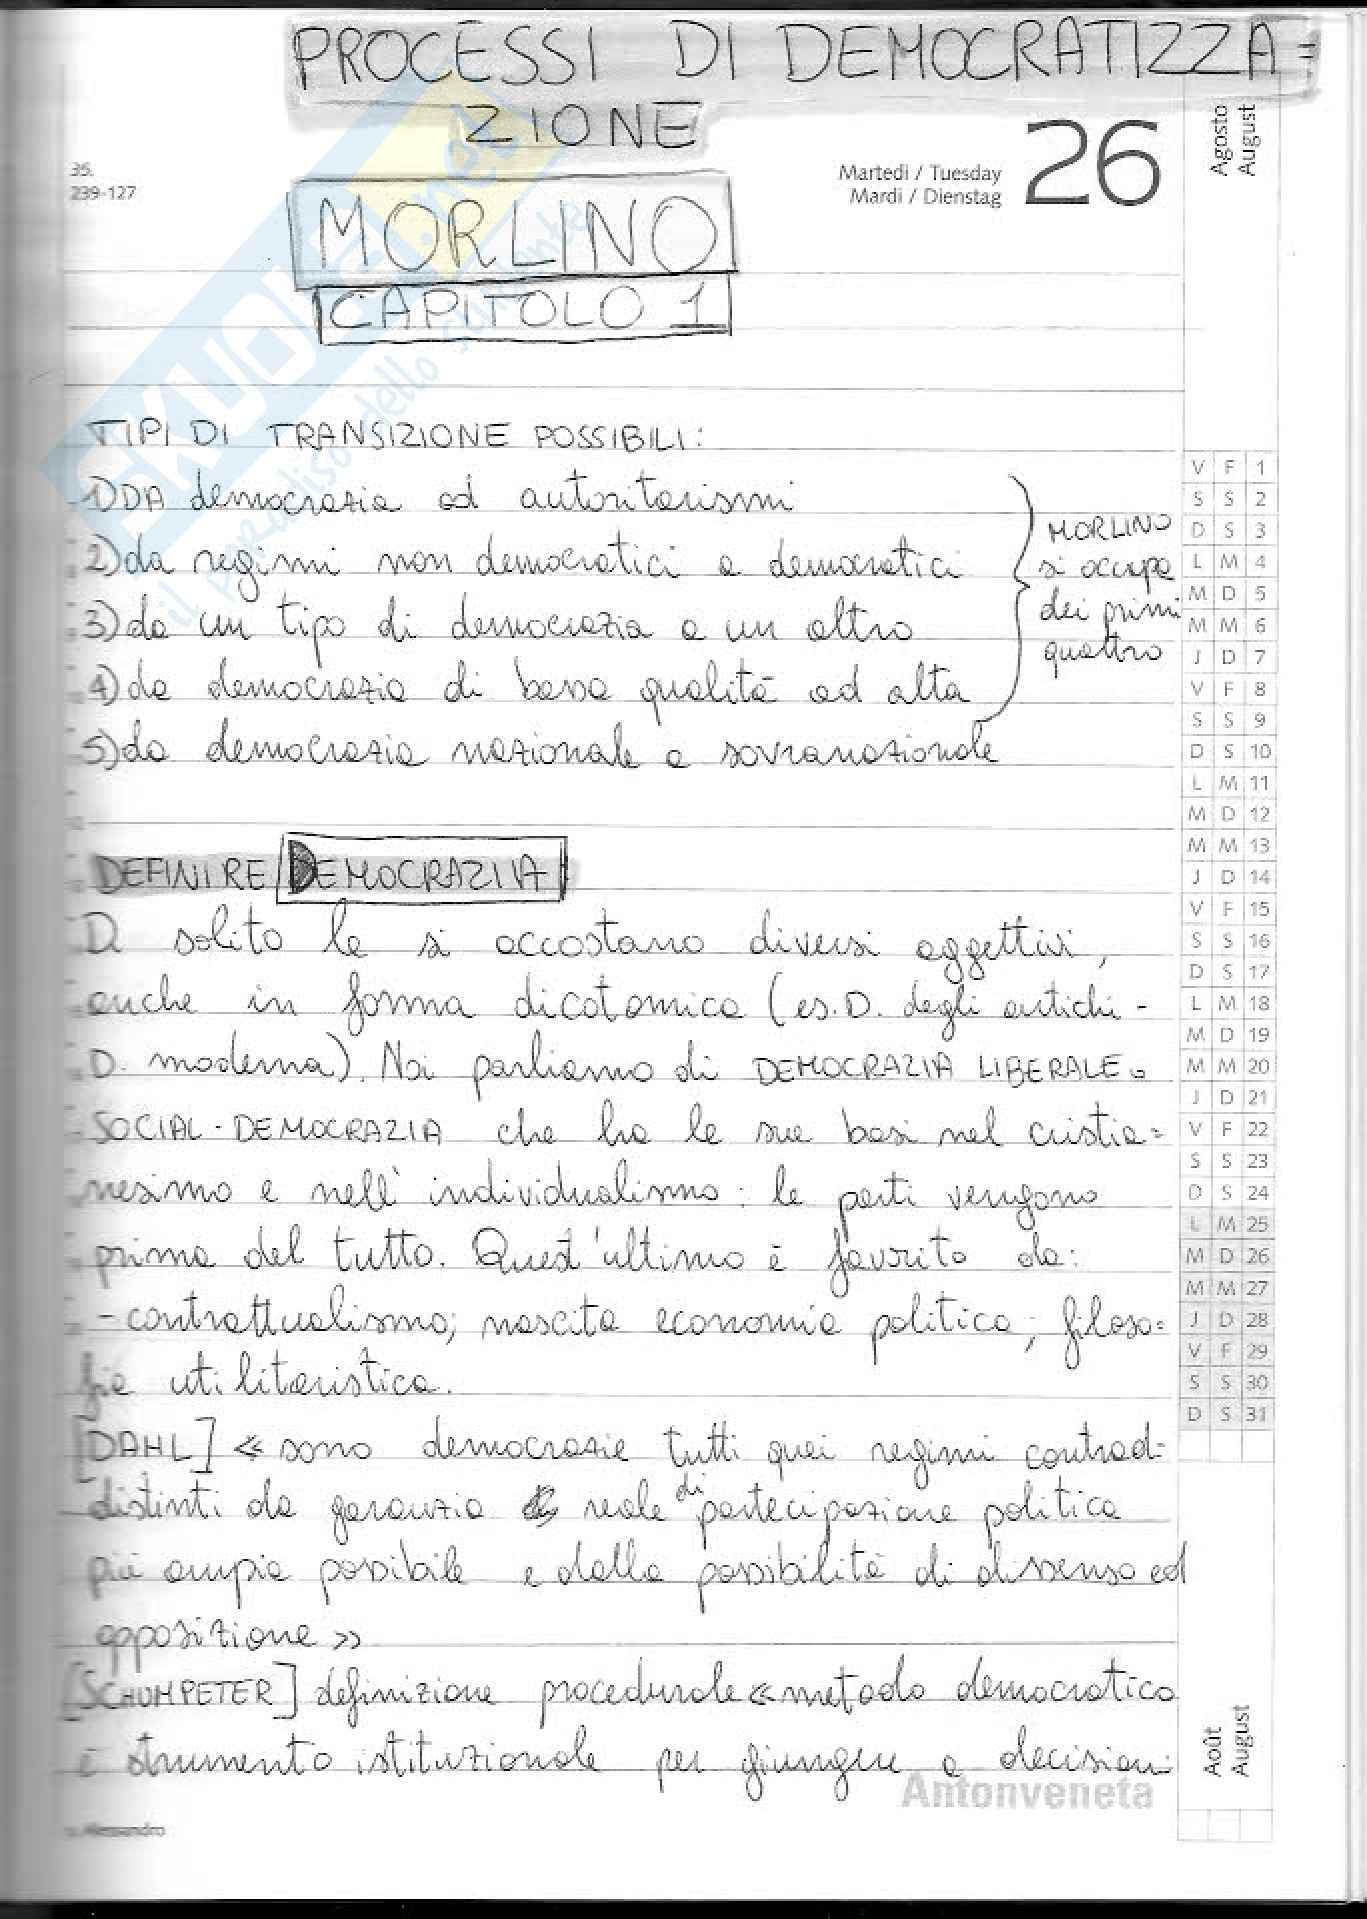 PROCESSI DI DEMOCRATIZZA=
ZIONE
35.
239-127
Martedì / Tuesday
Mardi / Dienstag
26
Agosto
August
MORLINO
CAPITOLO 1
SKUOLA.net
il paradiso dello studente
TIPI DI TRANSIZIONE POSSIBILI:
1) DA democrazia ad autoritarismi
2) da regimi non democratici a democratici
3) da un tipo di democrazia a un altro
4) da democrazia di bassa qualità ad alta
5) da democrazia nazionale a sovranazionale
MORLINO
si occupa
dei primi
quattro
DEFINIRE DEMOCRAZIA
Di solito le si accostano diversi aggettivi,
anche in forma dicotomica (es. D. degli antichi -
D. moderna). Noi parliamo di DEMOCRAZIA LIBERALE o
SOCIAL-DEMOCRAZIA che ha le sue basi nel cristia=
nesimo e nell'individualismo: le parti vengono
prima del tutto. Quest'ultimo è favorito da:
- contrattualismo; nascita economia politica; filoso=
fia utilitaristica.
[DAHL] « sono democrazie tutti quei regimi contrad=
distinti da garanzia reale di partecipazione politica
più ampia possibile e dalla possibilità di dissenso ed
opposizione »
[SCHUMPETER] definizione procedurale « metodo democratico
è strumento istituzionale per giungere a decisioni
V F 1
S S 2
D S 3
L M 4
M D 5
M M 6
J D 7
V F 8
S S 9
D S 10
L M 11
M D 12
M M 13
J D 14
V F 15
S S 16
D S 17
L M 18
M D 19
M M 20
J D 21
V F 22
S S 23
D S 24
L M 25
M D 26
M M 27
J D 28
V F 29
S S 30
D S 31
Août
August
Antonveneta
Alessandro